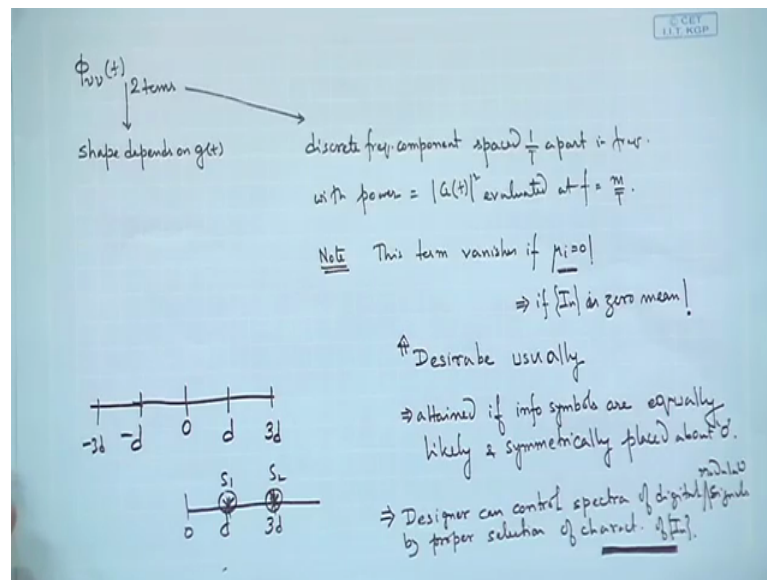 © CET
I.I.T. KGP
Φ_vv(t)
2 terms
shape depends on g(t)
discrete freq. component spaced 1/T apart in freq.
with power = |G(f)|² evaluated at f = m/T.
Note This term vanishes if μi=0!
⇒ if {In} is zero mean!
⇑ Desirabe usually
⇒ attained if info symbols are equally
likely & symmetrically placed about '0'.
⇒ Designer can control spectra of digital modulated signals
by proper selection of charact. of {In}.
-3d -d 0 d 3d
S1 S2
0 d 3d